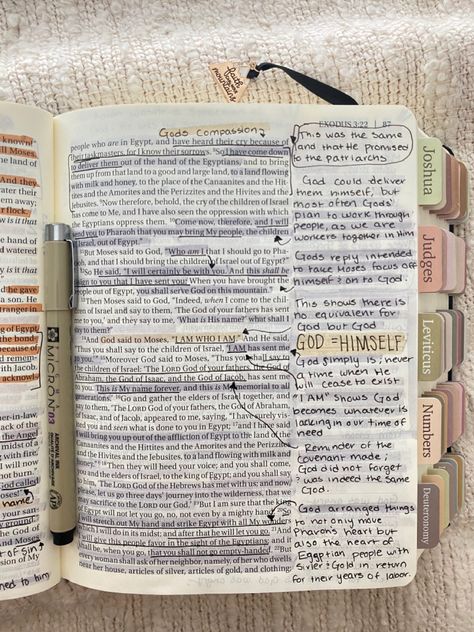 faith
can
move
mountains
EXODUS 3:22
87
Gods compassion
people who are in Egypt, and have heard their cry because of
their taskmasters, for I know their sorrows. ⁸So I have come down
to deliver them out of the hand of the Egyptians, and to bring
them up from that land to a good and large land, to a land flowing
with milk and honey, to the place of the Canaanites and the Hit-
tites and the Amorites and the Perizzites and the Hivites and the
Jebusites. ⁹Now therefore, behold, the cry of the children of Israel
has come to Me, and I have also seen the oppression with which
the Egyptians oppress them. ¹⁰Come now, therefore, and I will
send you to Pharaoh that you may bring My people, the children
of Israel, out of Egypt."
¹¹But Moses said to God, "Who am I that I should go to Pha-
raoh, and that I should bring the children of Israel out of Egypt?"
¹²So He said, "I will certainly be with you. And this shall be
a sign to you that I have sent you: When you have brought the
people out of Egypt, you shall serve God on this mountain."
¹³Then Moses said to God, "Indeed, when I come to the chil-
dren of Israel and say to them, 'The God of your fathers has sent
me to you,' and they say to me, 'What is His name?' what shall I
say to them?"
¹⁴And God said to Moses, "I AM WHO I AM." And He said,
"Thus you shall say to the children of Israel, 'I AM has sent me
to you.'" ¹⁵Moreover God said to Moses, "Thus you shall say to
the children of Israel: 'The LORD God of your fathers, the God of
Abraham, the God of Isaac, and the God of Jacob, has sent me
to you. This is My name forever, and this is My memorial to all
generations.' ¹⁶Go and gather the elders of Israel together, and
say to them, 'The LORD God of your fathers, the God of Abraham,
of Isaac, and of Jacob, appeared to me, saying, "I have surely vis-
ited you and seen what is done to you in Egypt; ¹⁷and I have said
I will bring you up out of the affliction of Egypt to the land of the
Canaanites and the Hittites and the Amorites and the Perizzites
and the Hivites and the Jebusites, to a land flowing with milk and
honey."' ¹⁸Then they will heed your voice; and you shall come,
you and the elders of Israel, to the king of Egypt; and you shall say
to him, 'The LORD God of the Hebrews has met with us; and now,
please, let us go three days' journey into the wilderness, that we
may sacrifice to the LORD our God.' ¹⁹But I am sure that the king
of Egypt will not let you go, no, not even by a mighty hand. ²⁰So I
will stretch out My hand and strike Egypt with all My wonders
which I will do in its midst; and after that he will let you go. ²¹And
I will give this people favor in the sight of the Egyptians; and it
shall be, when you go, that you shall not go empty-handed. ²²But
every woman shall ask of her neighbor, namely, of her who dwells
near her house, articles of silver, articles of gold, and clothing;
This was the same
land that He promised
to the patriarchs
God could deliver
them himself, but
most often Gods'
plan to work through
people, as we are
workers together in Him
Gods reply intended
to take Moses focus off
himself & on to God.
This shows there is
no equivalent for
God but God
GOD = HIMSELF
God simply is; never
a time when He
will cease to exist
"I AM" shows God
becomes whatever is
lacking in our time
of need
Reminder of the
covenant made;
God did not forget
& was indeed the same
God.
God arranged things
to not only move
Pharoh's heart but
also the heart of
Egyptian people with
Silver & Gold in return
for their years of labor
Joshua
Judges
Leviticus
Numbers
Deuteronomy
MICRON 03
ARCHIVAL INK